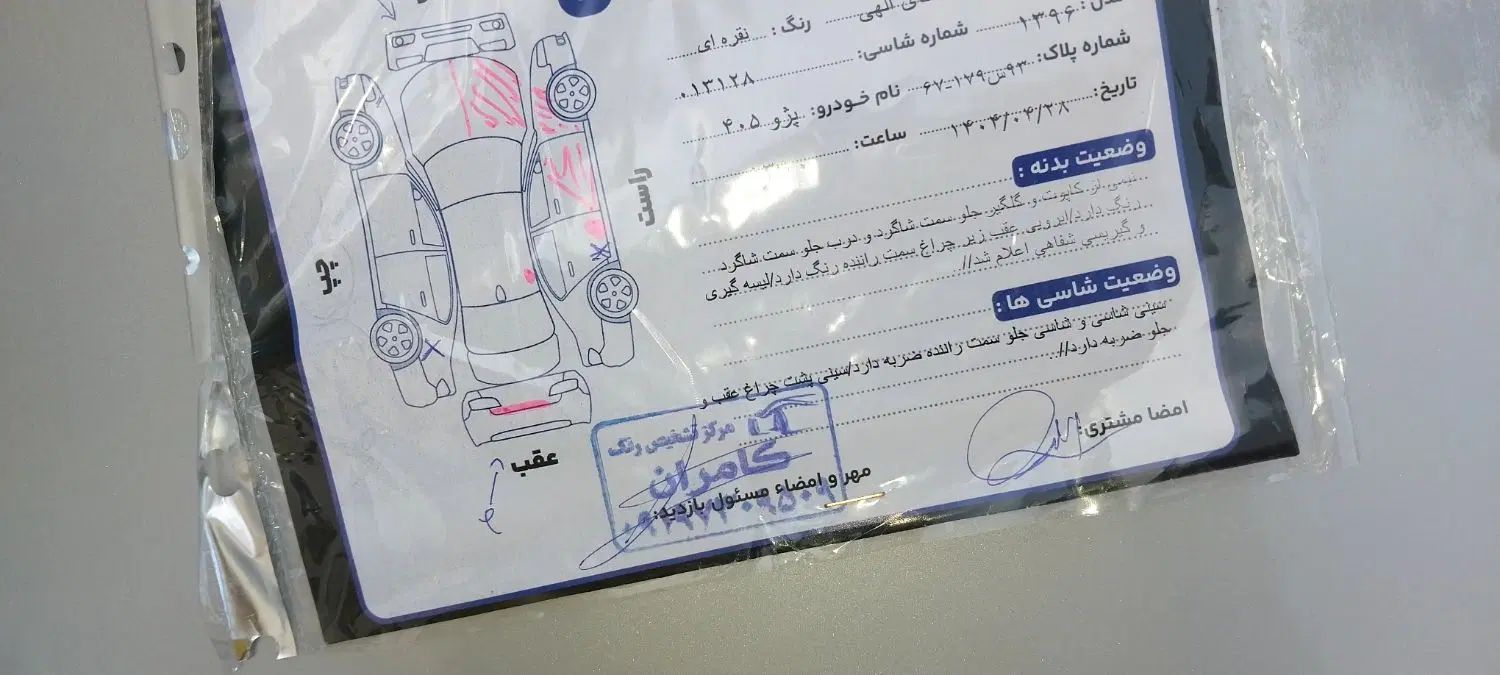 رنگ : نقره ای
مدل : ۱۳۹۶ شماره شاسی: ۰۱۳۱۲۸
شماره پلاک: ۹۳س۱۲۹-۶۷ نام خودرو: پژو ۴۰۵
تاریخ: ۱۴۰۴/۰۴/۲۸ ساعت:
وضعیت بدنه :
نیمی از کاپوت و گلگیر جلو سمت شاگرد و درب جلو سمت شاگرد
رنگ دارد/ابرویی عقب زیر چراغ سمت راننده رنگ دارد/لیسه گیری
و گیریسی شفاهی اعلام شد//
وضعیت شاسی ها :
سینی شاسی و شاسی جلو سمت راننده ضربه دارد/سینی پشت چراغ عقب و
جلو ضربه دارد//
امضا مشتری:
مهر و امضاء مسئول بازدید:
مرکز تشخیص رنگ
کامران
راست
چپ
عقب